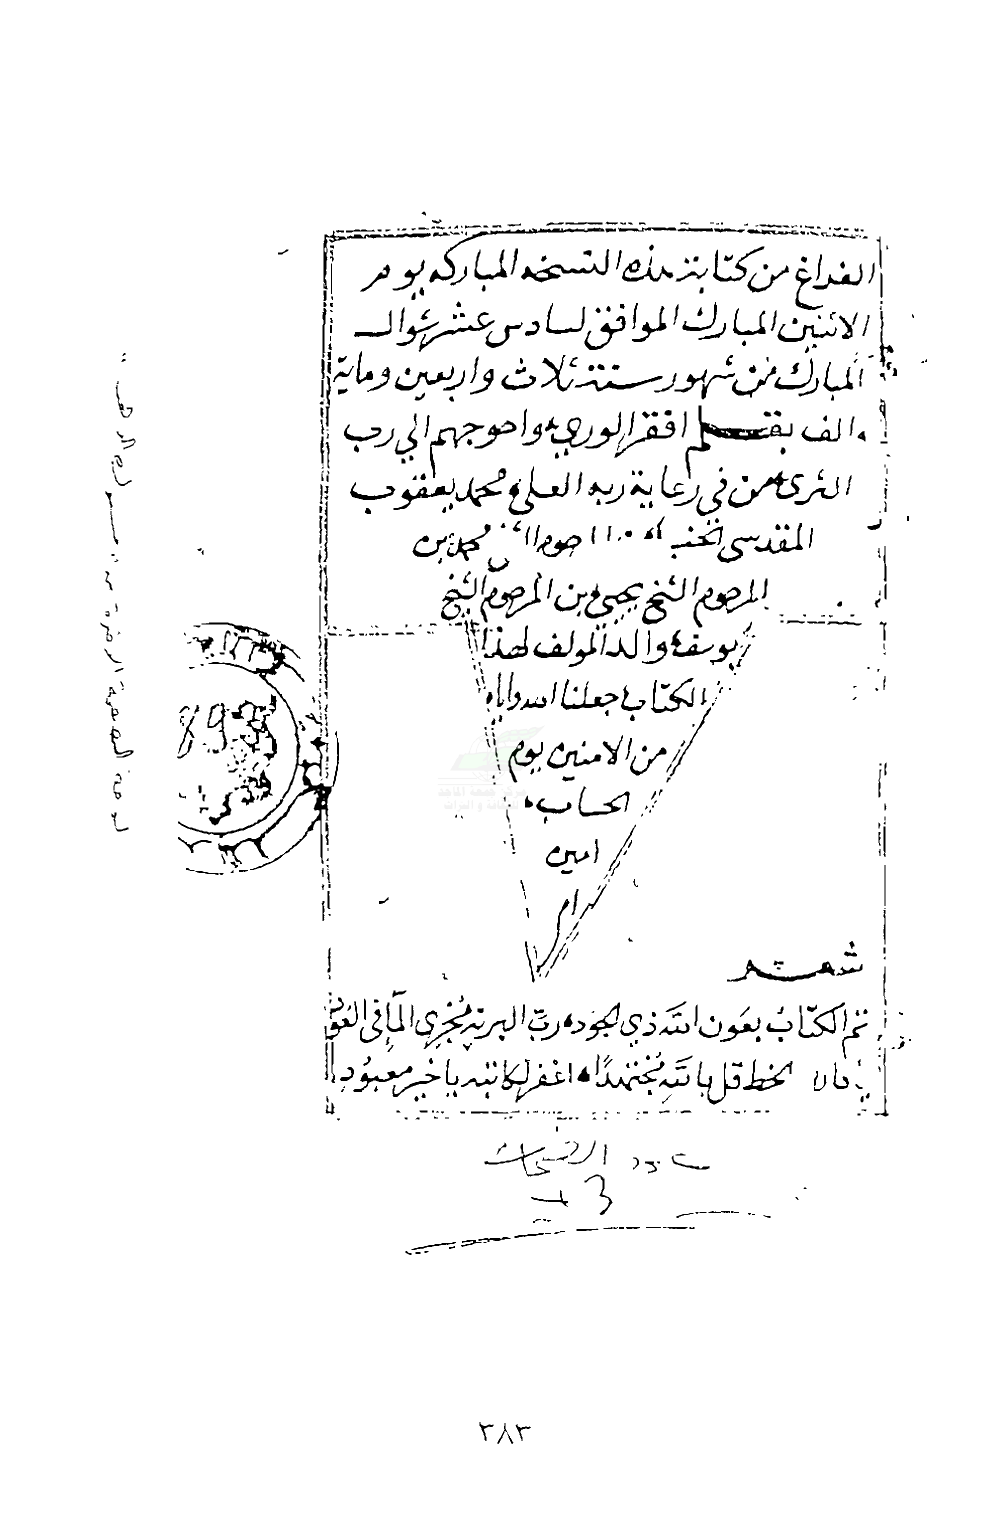 الفراغ من كتابة هذه النسخه المباركه يوم
الاثنين المبارك الموافق لسادس عشر شوال
المبارك من شهور سنة ثلاث واربعين وماية
والف بقلم افقر الوري واحوجهم الي رب
الثرى من في رعاية ربه العلي محمد يعقوب
المقدسي محمد بن
المرحوم الشيخ يحيى بن المرحوم الشيخ
يوسف والد المولف لهذا
الكتاب جعلنا الله واياه
من الامنين يوم
الحساب
امين
شعر
تم الكتاب بعون الله ذي الجود رب البرية مجري الما في العود
الخط قل بالله مجتهدا اغفر لكاتبه يا خير معبود
عدد الصفحات
مركز جمعة الماجد
للثقافة و التراث
٣٨٣